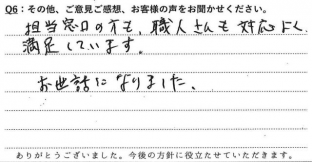 Q6：その他、ご意見ご感想、お客様の声をお聞かせください。
担当窓口の方も、職人さんも対応よく
満足しています。
お世話になりました。
ありがとうございました。今後の方針に役立たせていただきます。